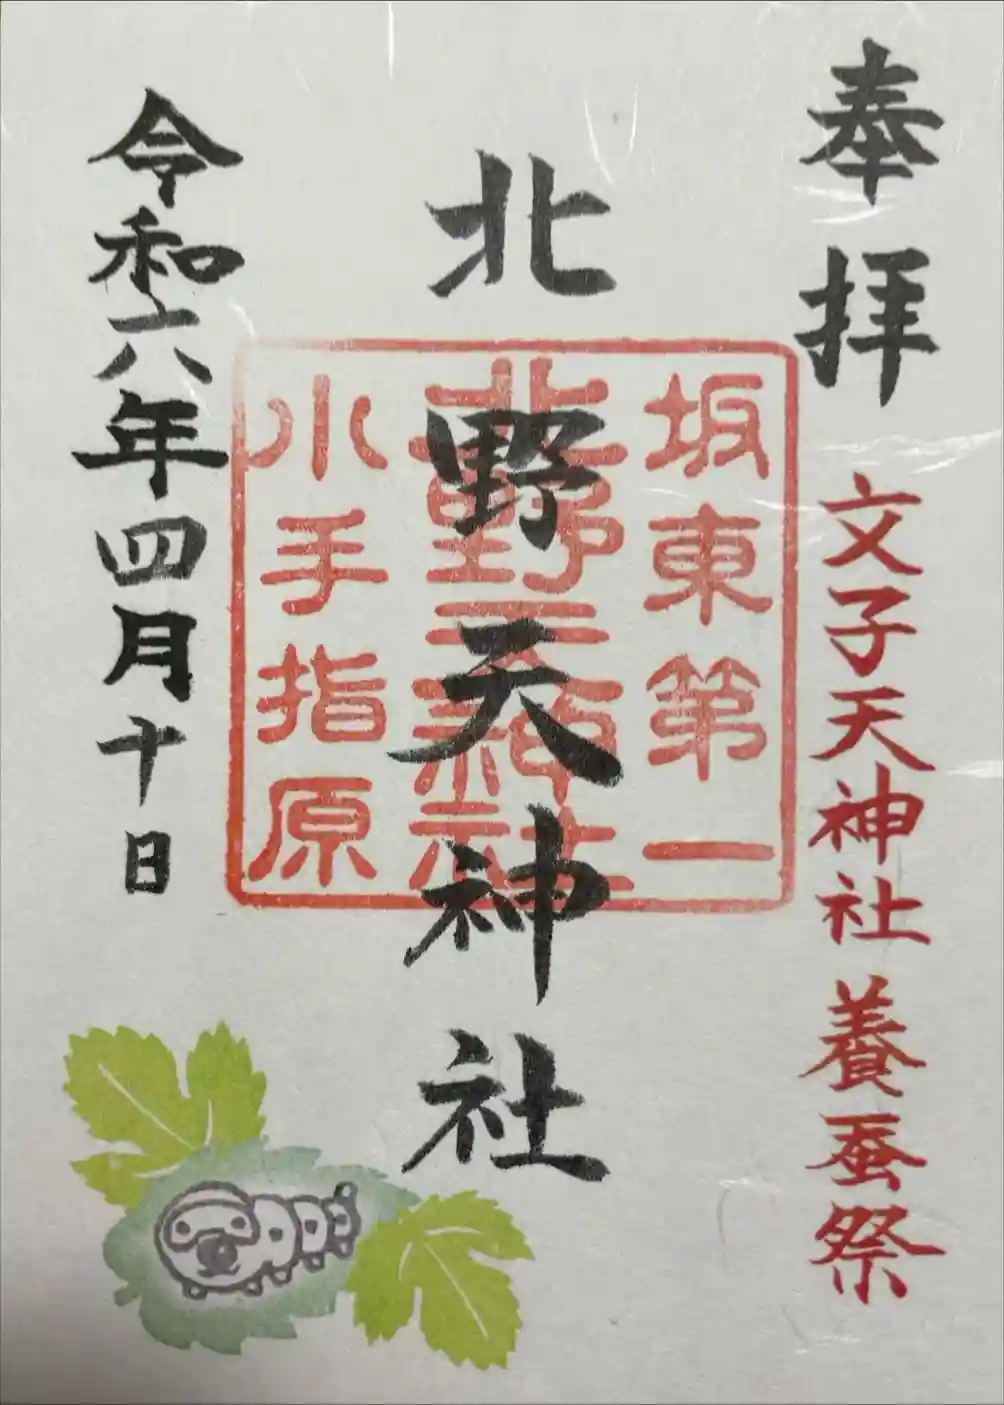 奉拝
文子天神社養蚕祭
北野天神社
坂東第一
北野天神社
小手指原
令和六年四月十日